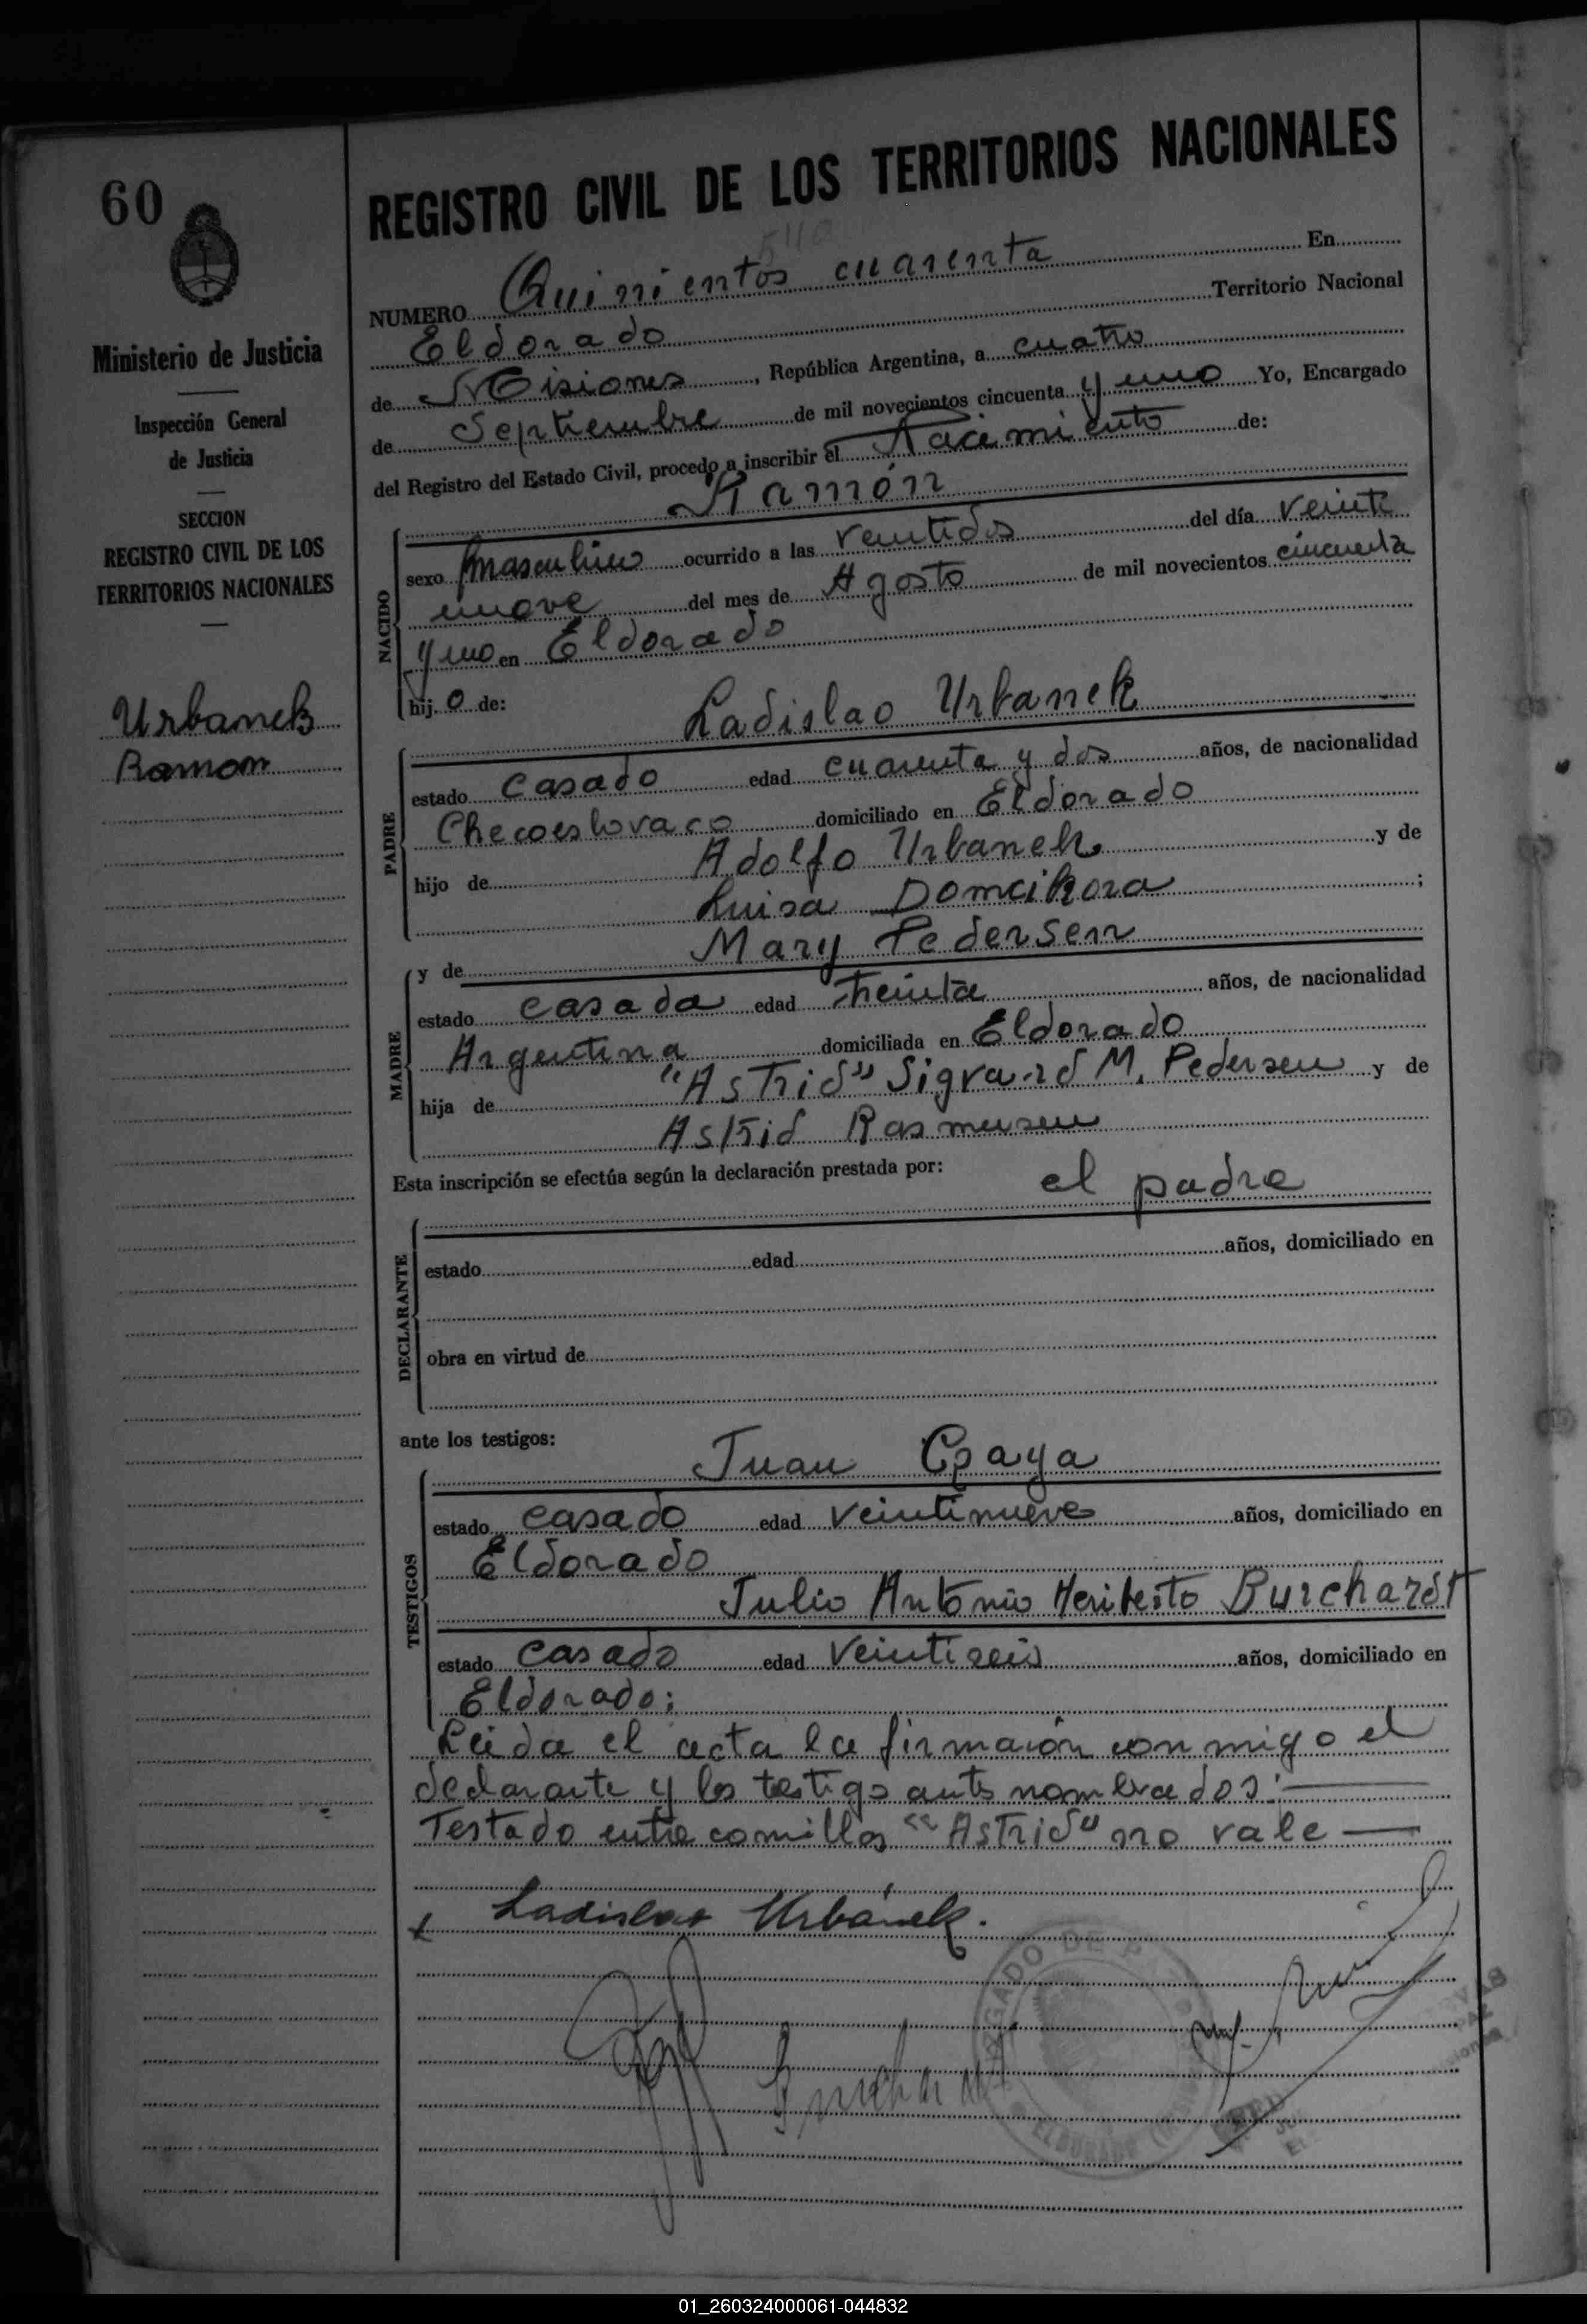 60
Ministerio de Justicia
Inspección General
de Justicia
SECCION
REGISTRO CIVIL DE LOS
TERRITORIOS NACIONALES
Urbanek
Ramon
REGISTRO CIVIL DE LOS TERRITORIOS NACIONALES
540
NUMERO Quinientos cuarenta En
Eldorado Territorio Nacional
de Misiones, República Argentina, a cuatro
de Septiembre de mil novecientos cincuenta y uno Yo, Encargado
del Registro del Estado Civil, procedo a inscribir el Nacimiento de:
Ramón
NACIDO
sexo masculino ocurrido a las veintidos del día veinte
nueve del mes de Agosto de mil novecientos cincuenta
y uno en Eldorado
hijo de:
Ladislao Urbanek
PADRE
estado casado edad cuarenta y dos años, de nacionalidad
Checoeslovaco domiciliado en Eldorado
hijo de Adolfo Urbanek y de
Luisa Domcikora;
y de Mary Pedersen
MADRE
estado casada edad treinta años, de nacionalidad
Argentina domiciliada en Eldorado
hija de "Astrid" Sigvard M. Pedersen y de
Astrid Rasmusen
Esta inscripción se efectúa según la declaración prestada por: el padre
DECLARANTE
estado edad años, domiciliado en
obra en virtud de
ante los testigos:
Juan Cpaya
TESTIGOS
estado casado edad veintinueve años, domiciliado en
Eldorado
Julio Antonio Heriberto Burchardt
estado casado edad veintiseis años, domiciliado en
Eldorado;
Leida el acta la firmaron conmigo el
declarante y los testigo ants nombrados:
Testado entre comillas "Astrid" no vale
Ladislao Urbánek.
JUZGADO DE P
ELDORADO
01_260324000061-044832